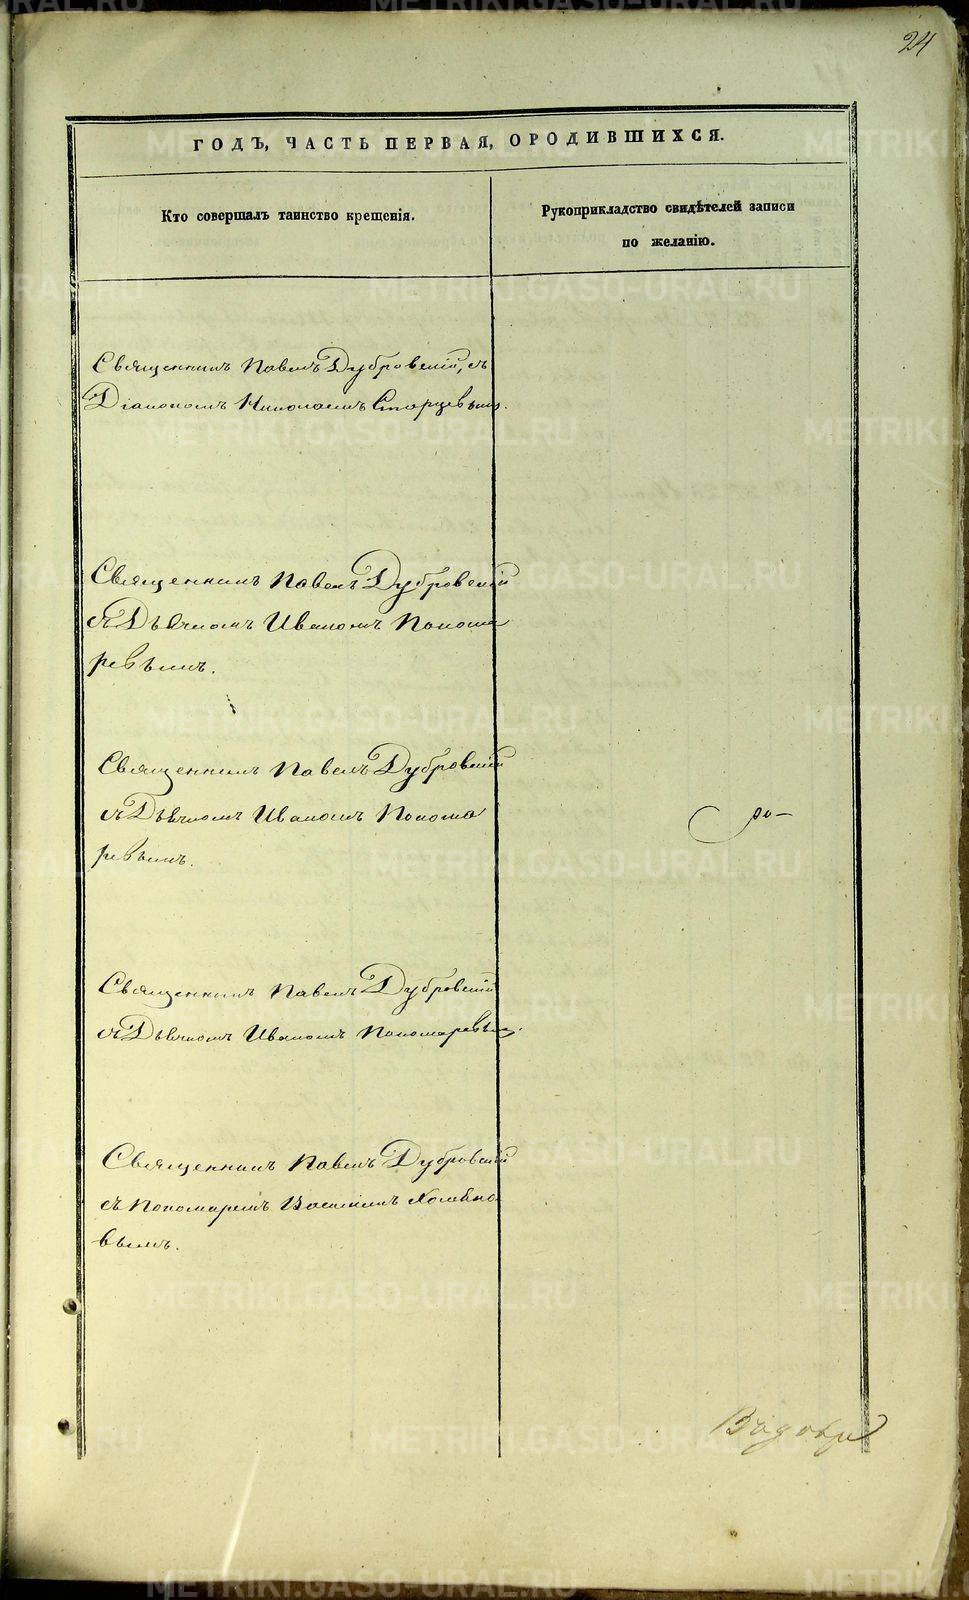 24
ГОДЪ, ЧАСТЬ ПЕРВАЯ, О РОДИВШИХСЯ.
Кто совершалъ таинство крещенія.
Рукоприкладство свидѣтелей записи
по желанію.
Священникъ Павелъ Дубровскій, съ
Діакономъ Николаемъ Старцевымъ.
Священникъ Павелъ Дубровскій
съ Дьячкомъ Иваномъ Понома
ревымъ.
Священникъ Павелъ Дубровскій
съ Дьячкомъ Иваномъ Понома
ревымъ.
Священникъ Павелъ Дубровскій
съ Дьячкомъ Иваномъ Пономаревымъ.
Священникъ Павелъ Дубровскій
съ Пономаремъ
вымъ.
METRIKI.GASO-URAL.RU